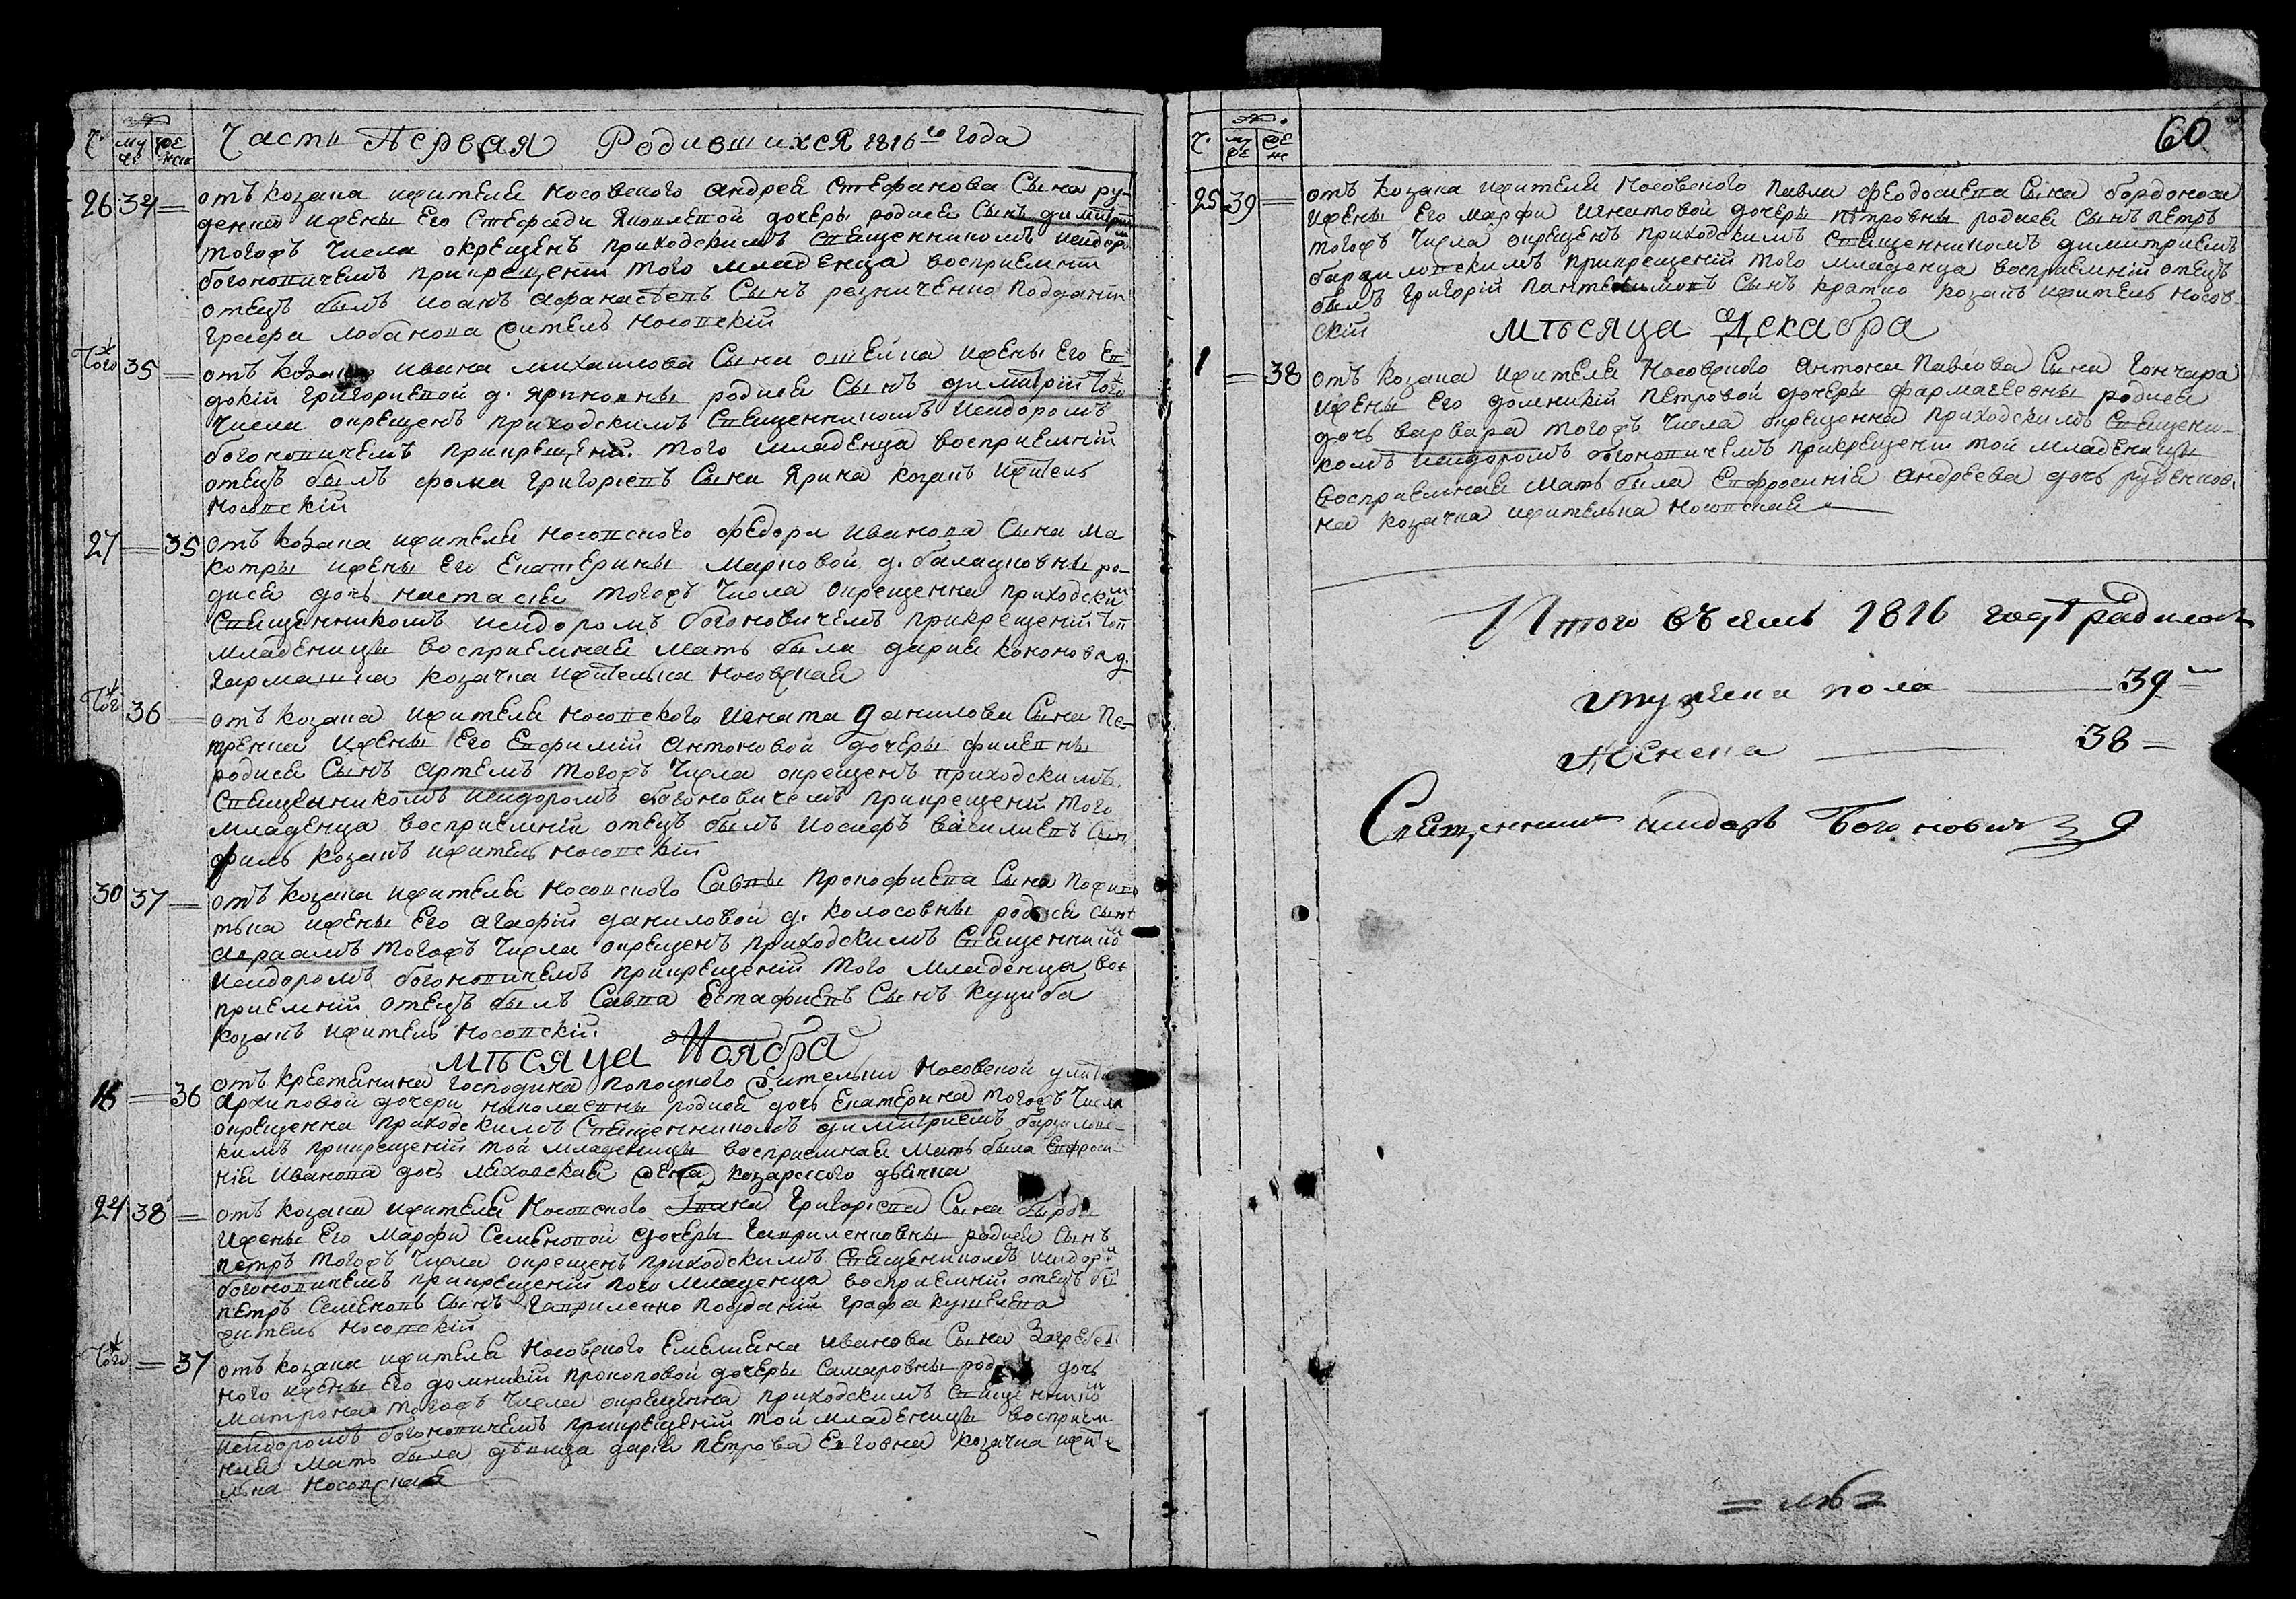 Ч. му же же нск Часть Первая Родившихся 1816го года
26 34 = отъ козака жителя Носовского андрея Стефанова Сына ру-
денка жены Его Стефади Яковлевой дочеры родися Сынъ димитрій
тогожъ Числа окрещенъ приходскимъ Священникомъ исидором
богоновичемъ прикрещеніи того младенца воспріемній
отецъ былъ иоанъ афанасіевъ Сынъ резниченко подданій
Графа лобанова житель Носовскій
Тогож 35 = отъ козака ивана михаилова Сына ошейка жены Его Ев
докіи Григориевой д. яриковны родися Сынъ димитрій Тогож
Числа окрещенъ приходскимъ Священникомъ исидоромъ
богоновичемъ прикрещеніи того младенца воспріемній
отецъ былъ фома Григоріевъ Сынъ Ярика козакъ житель
Носовскій
27 = 35 отъ козака жителя Носовского федора иванова Сына Ма
котры жены Его Екатерины Марковой д. балацковны ро-
дися дочь настасія тогожъ Числа окрещенна приходским
Священникомъ исидоромъ богоновичемъ прикрещеніи той
младеницы воспріемная мать была дарія кононова д.
Гармашка козачка жителька Носовская
Тогож 36 = отъ козака жителя Носовского игната данилова Сына Пе-
тренка жены Его Евфиміи антоновой дочеры филевны
родися Сынъ артемъ тогожъ Числа окрещенъ приходскимъ
Священникомъ исидоромъ богоновичемъ прикрещеніи того
младенца воспріемній отецъ былъ иосифъ василиевъ Сын
филь козакъ житель Носовскій
30 37 = отъ козака жителя Носовского Саввы прокофиева Сына
жены Его агафіи даниловой д. колосовны родися Сынъ
авраамъ тогожъ Числа окрещенъ приходскимъ Священником
исидоромъ богоновичемъ прикрещеніи того младенца вос
пріемній отецъ былъ Савва Естафиевъ Сынъ куциба
козакъ житель Носовскій.
мѣсяца Ноября
18 = 36 отъ крестянина Господина полоцкого жительки Носовской улиты
архиповой дочери николаевны родися дочь Екатерина тогожъ Числа
окрещенна приходскимъ Священникомъ димитриемъ барзиловс-
кимъ прикрещеніи той младеницы воспріемная мать была Евфроси-
нія иванова дочь ляховская жена козарского дьячка
24 38 = отъ козака жителя Носовского Григоріева Сына
жены Его Марфи Семеновой дочеры Гавриленковны родися Сынъ
петръ тогожъ Числа окрещенъ приходскимъ Священикомъ исидором
богоновичемъ прикрещеніи того младенца воспріемній отецъ был
петръ Семеновъ Сынъ Гавриленко подданій графа кушелева
житель Носовскій
Тогож = 37 отъ козака жителя Носовского Емелияна иванова Сына Загребел
ного жены Его домникіи прокоповой дочеры Самаровны родися дочь
матрона тогожъ Числа окрещенна приходскимъ Священником
исидоромъ богоновичемъ прикрещеніи той младеницы воспріем
ная мать была дѣвица дарія петрова козачка жите
лька Носовская
60
Ч. му же же нс
25 39 = отъ козака жителя Носовского павла феодосиева Сына бордоноса
жены Его марфи игнатовой дочеры петровны родися сынъ петръ
тогожъ Числа окрещенъ приходскимъ Священникомъ димитриемъ
барзиловскимъ прикрещеніи того младенца воспріемній отецъ
былъ Григорій пантелимовъ Сынъ кратко козакъ житель Носов-
скій
мѣсяца Декабра
1 = 38 отъ козака жителя Носовского антона павлова Сына Гончара
жены Его домникіи петровой дочеры фармагеевны родися
дочь варвара тогожъ Числа окрещенна приходскимъ Священи-
комъ исидоромъ богоновичемъ прикрещеніи той младеницы
воспріемная мать была Евфросинія андреева дочь руденкова
козачка жителька Носовская
Итого въ семъ 1816 годѣ родилось
мужеска пола 39
женска 38
Священник исидоръ Богонович